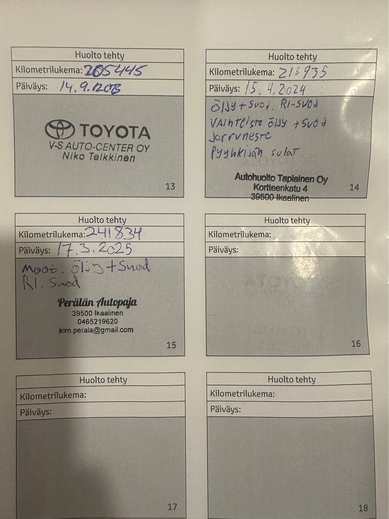 Huolto tehty
Kilometrilukema: 205445
Päiväys: 14.9.
TOYOTA
V-S AUTO-CENTER OY
Niko Teikkinen
13
Huolto tehty
Kilometrilukema: 216935
Päiväys: 15.4.2024
öljy + suod. RI-suod
vaihteisto öljy + suod
Jarruneste
Pyyhkijän sulat
Autohuolto Taplainen Oy
Kortteenkatu 4
39500 Ikaalinen
14
Huolto tehty
Kilometrilukema: 241834
Päiväys: 17.3.2025
Moot. öljy + Suod
RI. Suod
Perälän Autopaja
39500 Ikaalinen
0465219620
kim.perala@gmail.com
15
Huolto tehty
Kilometrilukema:
Päiväys:
16
Huolto tehty
Kilometrilukema:
Päiväys:
17
Huolto tehty
Kilometrilukema:
Päiväys:
18